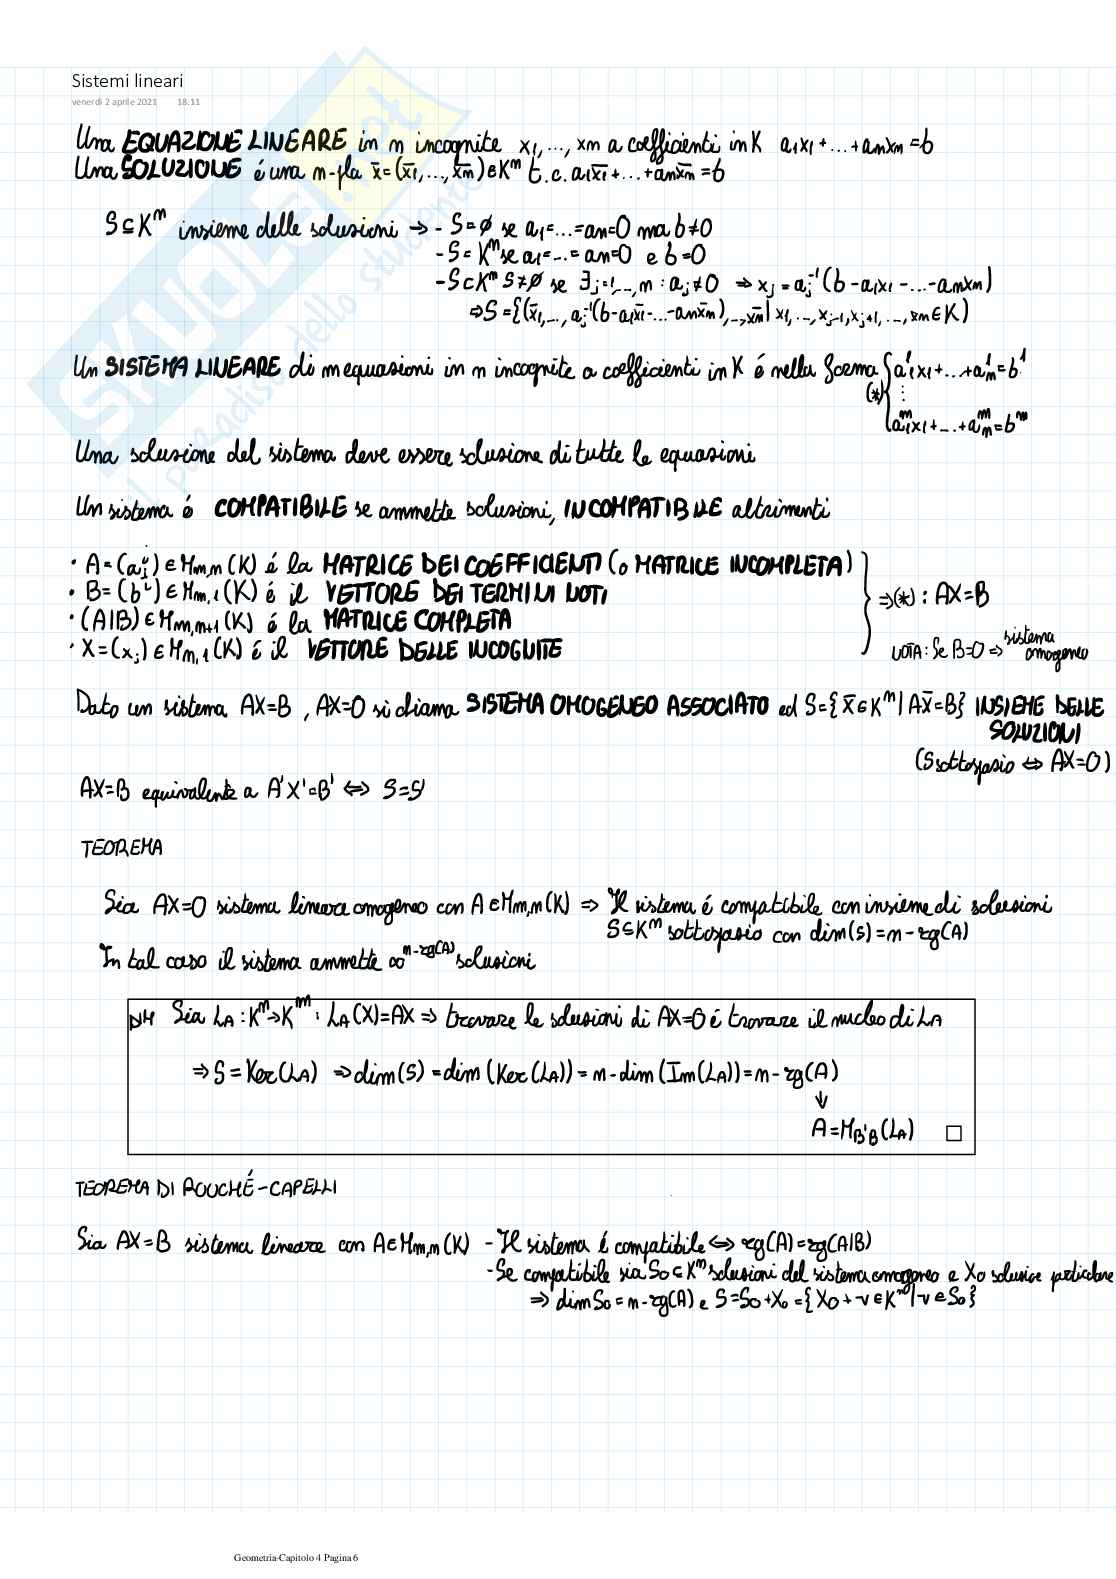 Sistemi lineari
venerdì 2 aprile 2021 18:11
Una EQUAZIONE LINEARE in n incognite x₁,…,xn a coefficienti in K a₁x₁+…+anxn=b
Una SOLUZIONE é una n-pla x̄=(x̄₁,…,x̄n)∈Kⁿ t.c. a₁x̄₁+…+anx̄n=b
S⊆Kⁿ insieme delle soluzioni → - S=∅ se a₁=…=an=0 ma b≠0
- S=Kⁿ se a₁=…=an=0 e b=0
- S⊂Kⁿ S≠∅ se ∃j=1,…,n : aj≠0 ⇒ xj=aj⁻¹(b-a₁x₁-…-anxn)
⇒S={(x̄₁,…,aj⁻¹(b-a₁x̄₁-…-anx̄n),…,x̄n| x₁,…,xj-1,xj+1,…,xn∈K)
Un SISTEMA LINEARE di m equazioni in n incognite a coefficienti in K é nella forma {a¹₁x₁+…+a¹n=b¹
(*) ⋮
aᵐ₁x₁+…+aᵐn=bᵐ
Una soluzione del sistema deve essere soluzione di tutte le equazioni
Un sistema é COMPATIBILE se ammette soluzioni, INCOMPATIBILE altrimenti
• A=(aⁱj)∈Mm,n(K) é la MATRICE DEI COEFFICIENTI (o MATRICE INCOMPLETA)
• B=(bⁱ)∈Mm,1(K) é il VETTORE DEI TERMINI NOTI
⇒(*): AX=B
• (A|B)∈Mm,n+1(K) é la MATRICE COMPLETA
• X=(xj)∈Mn,1(K) é il VETTORE DELLE INCOGNITE
NOTA: Se B=0 ⇒ sistema omogeneo
Dato un sistema AX=B, AX=0 si chiama SISTEMA OMOGENEO ASSOCIATO ed S={X̄∈Kⁿ|AX̄=B} INSIEME DELLE
SOLUZIONI
(S sottospazio ⇔ AX=0)
AX=B equivalente a A'X'=B' ⇔ S=S'
TEOREMA
Sia AX=0 sistema lineare omogeneo con A∈Mm,n(K) ⇒ Il sistema é compatibile con insieme di soluzioni
S⊆Kⁿ sottospazio con dim(S)=n-rg(A)
In tal caso il sistema ammette ∞ⁿ⁻ʳᵍ⁽ᴬ⁾ soluzioni
DIM Sia LA:Kⁿ→Kᵐ: LA(X)=AX ⇒ trovare le soluzioni di AX=0 é trovare il nucleo di LA
⇒S=Ker(LA) ⇒dim(S)=dim(Ker(LA))=n-dim(Im(LA))=n-rg(A)
↓
A=MB'B(LA) □
TEOREMA DI ROUCHÉ-CAPELLI
Sia AX=B sistema lineare con A∈Mm,n(K) - Il sistema é compatibile⇔rg(A)=rg(A|B)
- Se compatibile sia S₀⊂Kⁿ soluzioni del sistema omogeneo e X₀ soluzione particolare
⇒ dim S₀=n-rg(A) e S=S₀+X₀={X₀+v∈Kⁿ|v∈S₀}
Geometria-Capitolo 4 Pagina 6
SKUOLA.net
il paradiso dello studente